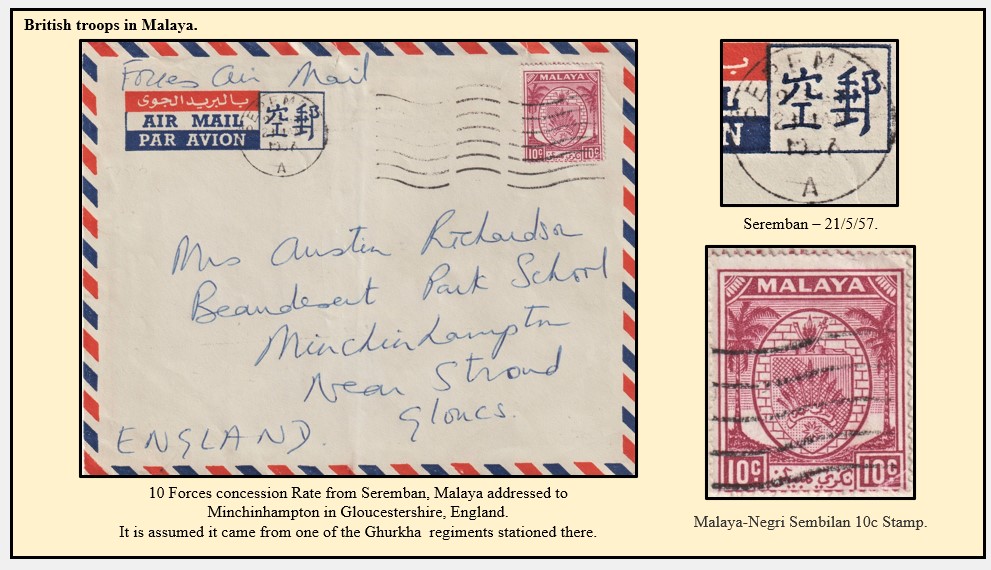 British troops in Malaya.
Forces Air Mail
بالبريد الجوى
AIR MAIL
PAR AVION
空郵
SEREMBAN
1957
A
MALAYA
10c
10c
Mrs Austin Richardson
Beaudesert Park School
Minchinhampton
Near Stroud
Gloucs.
ENGLAND.
10 Forces concession Rate from Seremban, Malaya addressed to
Minchinhampton in Gloucestershire, England.
It is assumed it came from one of the Ghurkha regiments stationed there.
空郵
1957
A
Seremban – 21/5/57.
MALAYA
10c
10c
Malaya-Negri Sembilan 10c Stamp.